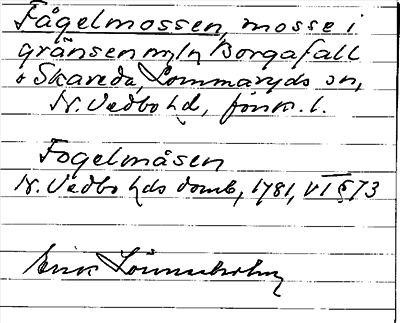 Fågelmossen, mosse i
gränsen m/n Borgafall
o Skareda, Lommaryds sn,
N. Vedbo hd, Jönk. l.
Fogelmåsen
N. Vedbo hds domb, 1781, VI § 73